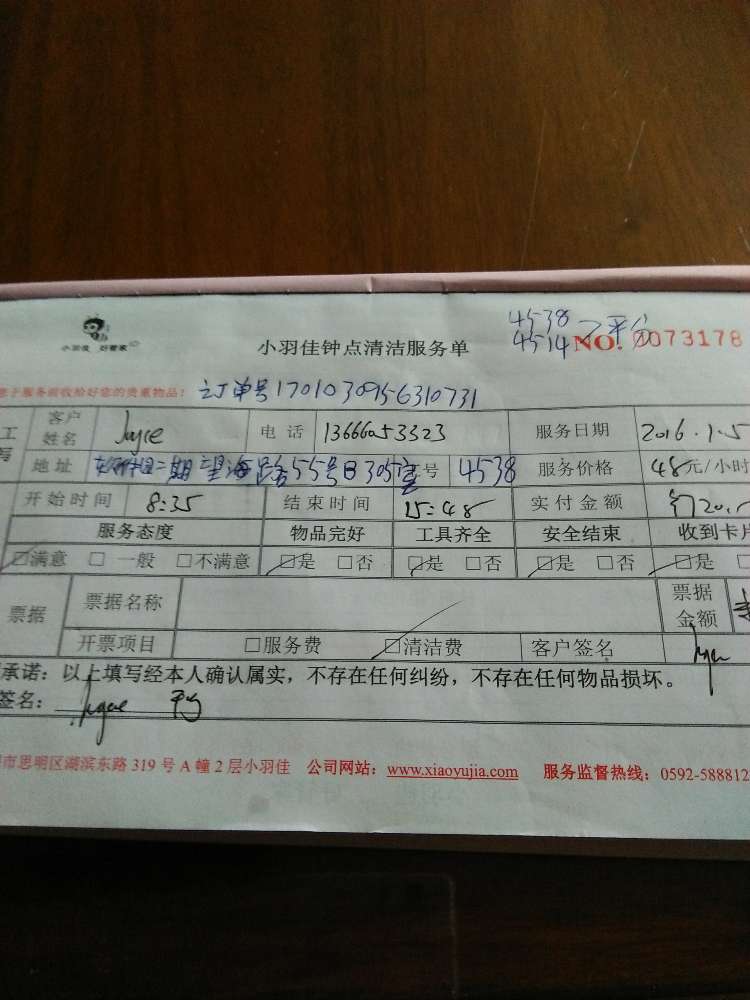 4538
4514 平分
小羽佳 好管家
小羽佳钟点清洁服务单
NO. 0073178
于服务前收给好您的贵重物品!
订单号1701030956310731
工 客户姓名 Joyce 电 话 13666053323 服务日期 2016.1.5
写 地址 二期望海路55号B305室 号 4538 服务价格 48元/小时
开始时间 8:35 结束时间 15:48 实付金额
服务态度 物品完好 工具齐全 安全结束 收到卡片
☑满意 □一般 □不满意 ☑是 □否 ☑是 □否 ☑是 □否 ☑是 □
票据 票据名称 票据金额
开票项目 □服务费 ☑清洁费 客户签名 Joyce
承诺：以上填写经本人确认属实，不存在任何纠纷，不存在任何物品损坏。
签名： Joyce
市思明区湖滨东路 319 号 A 幢 2 层小羽佳 公司网站：www.xiaoyujia.com 服务监督热线：0592-588812